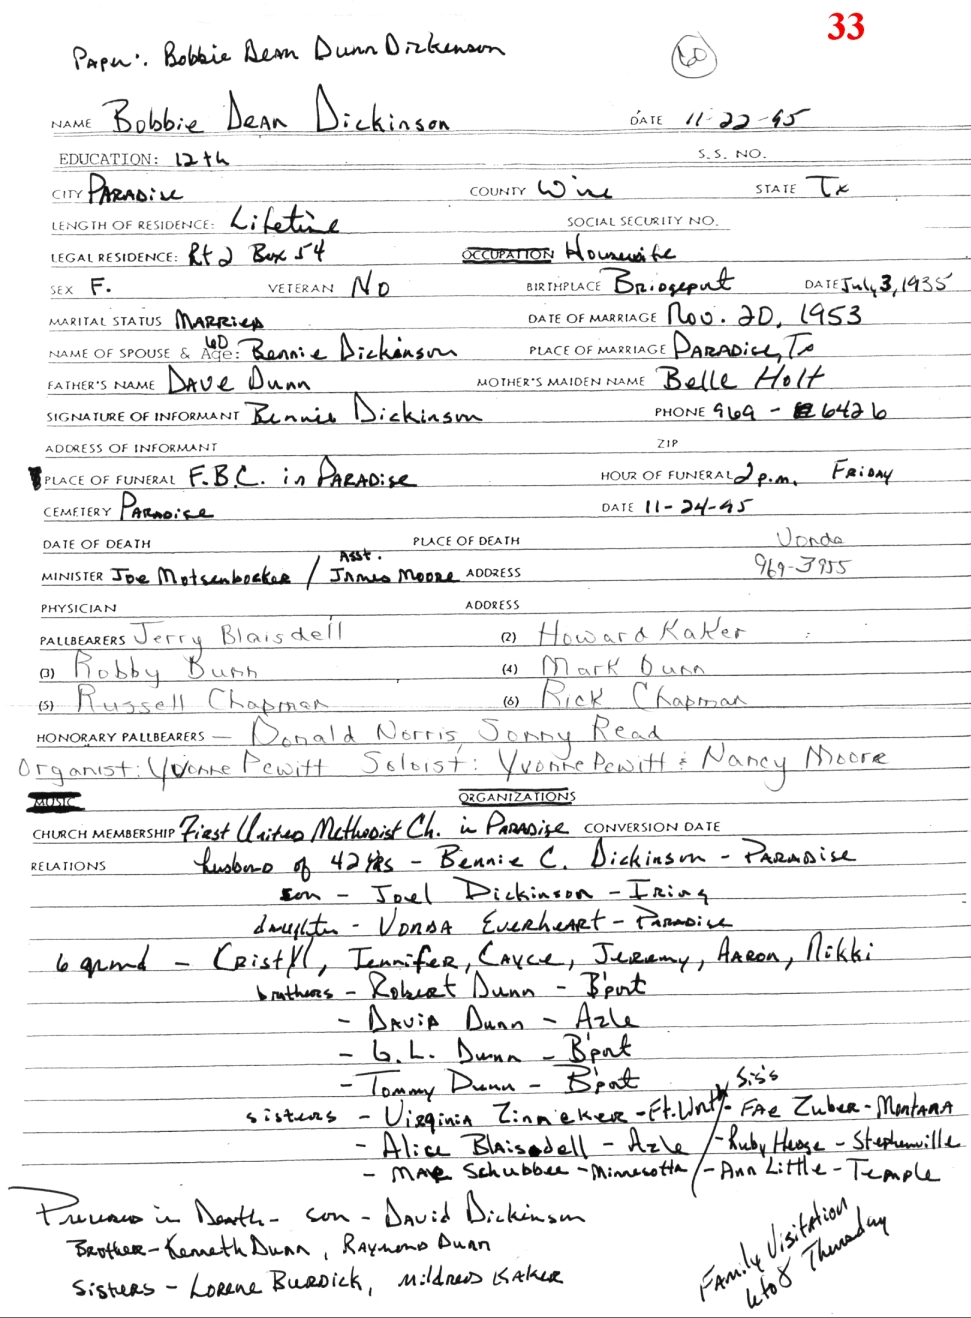 33
Paper: Bobbie Dean Dunn Dickenson
60
NAME Bobbie Dean Dickinson DATE 11-22-95
EDUCATION: 12th S.S. NO.
CITY Paradise COUNTY Wise STATE Tx
LENGTH OF RESIDENCE: Lifetime SOCIAL SECURITY NO.
LEGAL RESIDENCE: Rt 2 Box 54 OCCUPATION Housewife
SEX F. VETERAN NO BIRTHPLACE Bridgeport DATE July 3, 1935
MARITAL STATUS Married DATE OF MARRIAGE Nov. 20, 1953
NAME OF SPOUSE & Age: 60 Bennie Dickinson PLACE OF MARRIAGE Paradise, Tx
FATHER'S NAME Dave Dunn MOTHER'S MAIDEN NAME Belle Holt
SIGNATURE OF INFORMANT Bennie Dickinson PHONE 969-6426
ADDRESS OF INFORMANT ZIP
PLACE OF FUNERAL F.B.C. in Paradise HOUR OF FUNERAL 2 p.m. Friday
CEMETERY Paradise DATE 11-24-95
DATE OF DEATH PLACE OF DEATH Vonda
MINISTER Joe Motsenbocker / Asst. James Moore ADDRESS 969-3955
PHYSICIAN ADDRESS
PALLBEARERS Jerry Blaisdell (2) Howard Kaker
(3) Robby Dunn (4) Mark Dunn
(5) Russell Chapman (6) Rick Chapman
HONORARY PALLBEARERS — Donald Norris, Jonny Read
Organist: Yvonne Pewitt Soloist: Yvonne Pewitt & Nancy Moore
MUSIC ORGANIZATIONS
CHURCH MEMBERSHIP First United Methodist Ch. in Paradise CONVERSION DATE
RELATIONS husband of 42 yrs - Bennie C. Dickinson - Paradise
son - Joel Dickinson - Irving
daughter - Vonda Everheart - Paradise
6 grand - Cristyl, Jennifer, Cayce, Jeremy, Aaron, Nikki
brothers - Robert Dunn - B'port
- David Dunn - Azle
- G.L. Dunn - B'port
- Tommy Dunn - B'port Sis's
sisters - Virginia Zinneker - Ft. Worth - Fae Zuber - Montana
- Alice Blaisdell - Azle - Ruby Hease - Stephenville
- Mae Schubbee - Minnesotta - Ann Little - Temple
Preceded in Death - son - David Dickinson
Brother - Kenneth Dunn, Raymond Dunn
Sisters - Lorene Burdick, Mildred Kaker
Family Visitation
6 to 8 Thursday